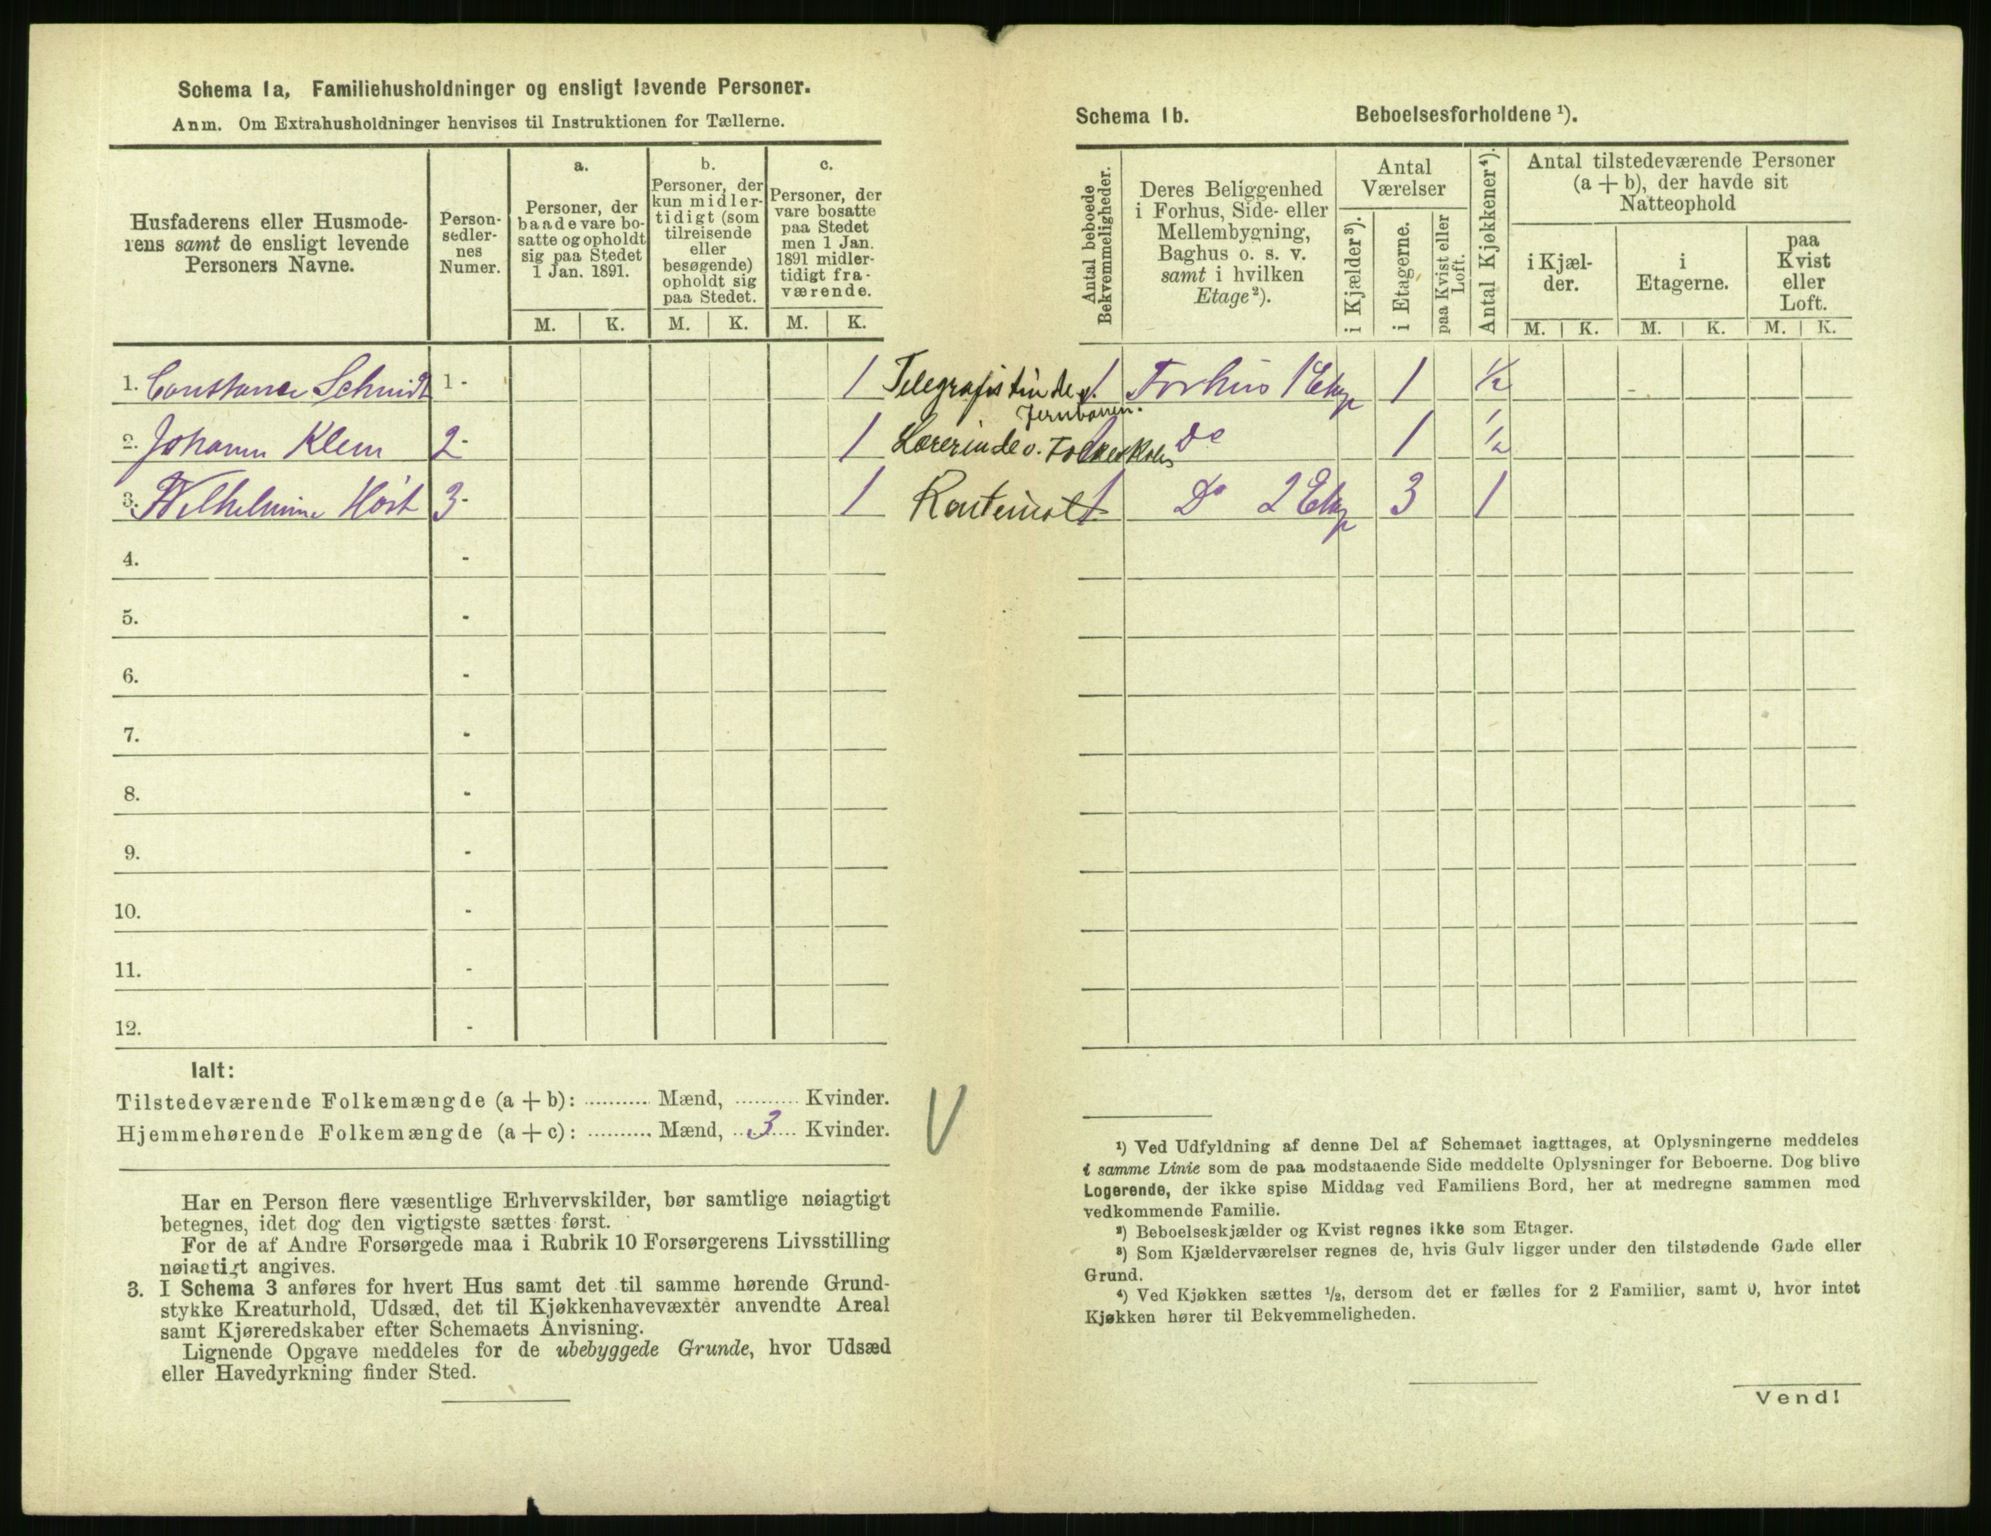 Schema 1a, Familiehusholdninger og ensligt levende Personer.
Anm. Om Extrahusholdninger henvises til Instruktionen for Tællerne.
Husfaderens eller Husmode-
rens samt de ensligt levende
Personers Navne.
Person-
sedler-
nes
Numer.
a.
Personer, der
baade vare bo-
satte og opholdt
sig paa Stedet
1 Jan. 1891.
b.
Personer, der
kun midler-
tidigt (som
tilreisende
eller
besøgende)
opholdt sig
paa Stedet.
c.
Personer, der
vare bosatte
paa Stedet
men 1 Jan.
1891 midler-
tidigt fra-
værende.
M. K. M. K. M. K.
1. Constance Schmidt 1 - 1 Telegrafistinde v. Jernbanen.
2. Johanne Klem 2 - 1 Lærerinde v. Folkeskolen
3. Wilhelmine Höst 3 - 1
4. -
5. -
6. -
7. -
8. -
9. -
10. -
11. -
12. -
Ialt:
Tilstedeværende Folkemængde (a + b): .......... Mænd, .......... Kvinder.
Hjemmehørende Folkemængde (a + c): .......... Mænd, ..3.... Kvinder.
V
Har en Person flere væsentlige Erhvervskilder, bør samtlige nøiagtigt
betegnes, idet dog den vigtigste sættes først.
For de af Andre Forsørgede maa i Rubrik 10 Forsørgerens Livsstilling
nøiagtigt angives.
3. I Schema 3 anføres for hvert Hus samt det til samme hørende Grund-
stykke Kreaturhold, Udsæd, det til Kjøkkenhavevæxter anvendte Areal
samt Kjøreredskaber efter Schemaets Anvisning.
Lignende Opgave meddeles for de ubebyggede Grunde, hvor Udsæd
eller Havedyrkning finder Sted.
Schema 1b. Beboelsesforholdene ¹).
Antal beboede
Bekvemmeligheder.
Deres Beliggenhed
i Forhus, Side- eller
Mellembygning,
Baghus o. s. v.
samt i hvilken
Etage ²).
Antal
Værelser
i Kjælder ³).
i Etagerne.
paa Kvist eller
Loft.
Antal Kjøkkener ⁴).
Antal tilstedeværende Personer
(a + b), der havde sit
Natteophold
i Kjæl-
der.
i
Etagerne.
paa
Kvist
eller
Loft.
M. K. M. K. M. K.
1 Forhus 1 Etage 1 ½
1 Do 1 ½
1 Do 2 Etage 3 1
¹) Ved Udfyldning af denne Del af Schemaet iagttages, at Oplysningerne meddeles
i samme Linie som de paa modstaaende Side meddelte Oplysninger for Beboerne. Dog blive
Logerende, der ikke spise Middag ved Familiens Bord, her at medregne sammen med
vedkommende Familie.
²) Beboelseskjælder og Kvist regnes ikke som Etager.
³) Som Kjælderværelser regnes de, hvis Gulv ligger under den tilstødende Gade eller
Grund.
⁴) Ved Kjøkken sættes ½, dersom det er fælles for 2 Familier, samt 0, hvor intet
Kjøkken hører til Bekvemmeligheden.
Vend!